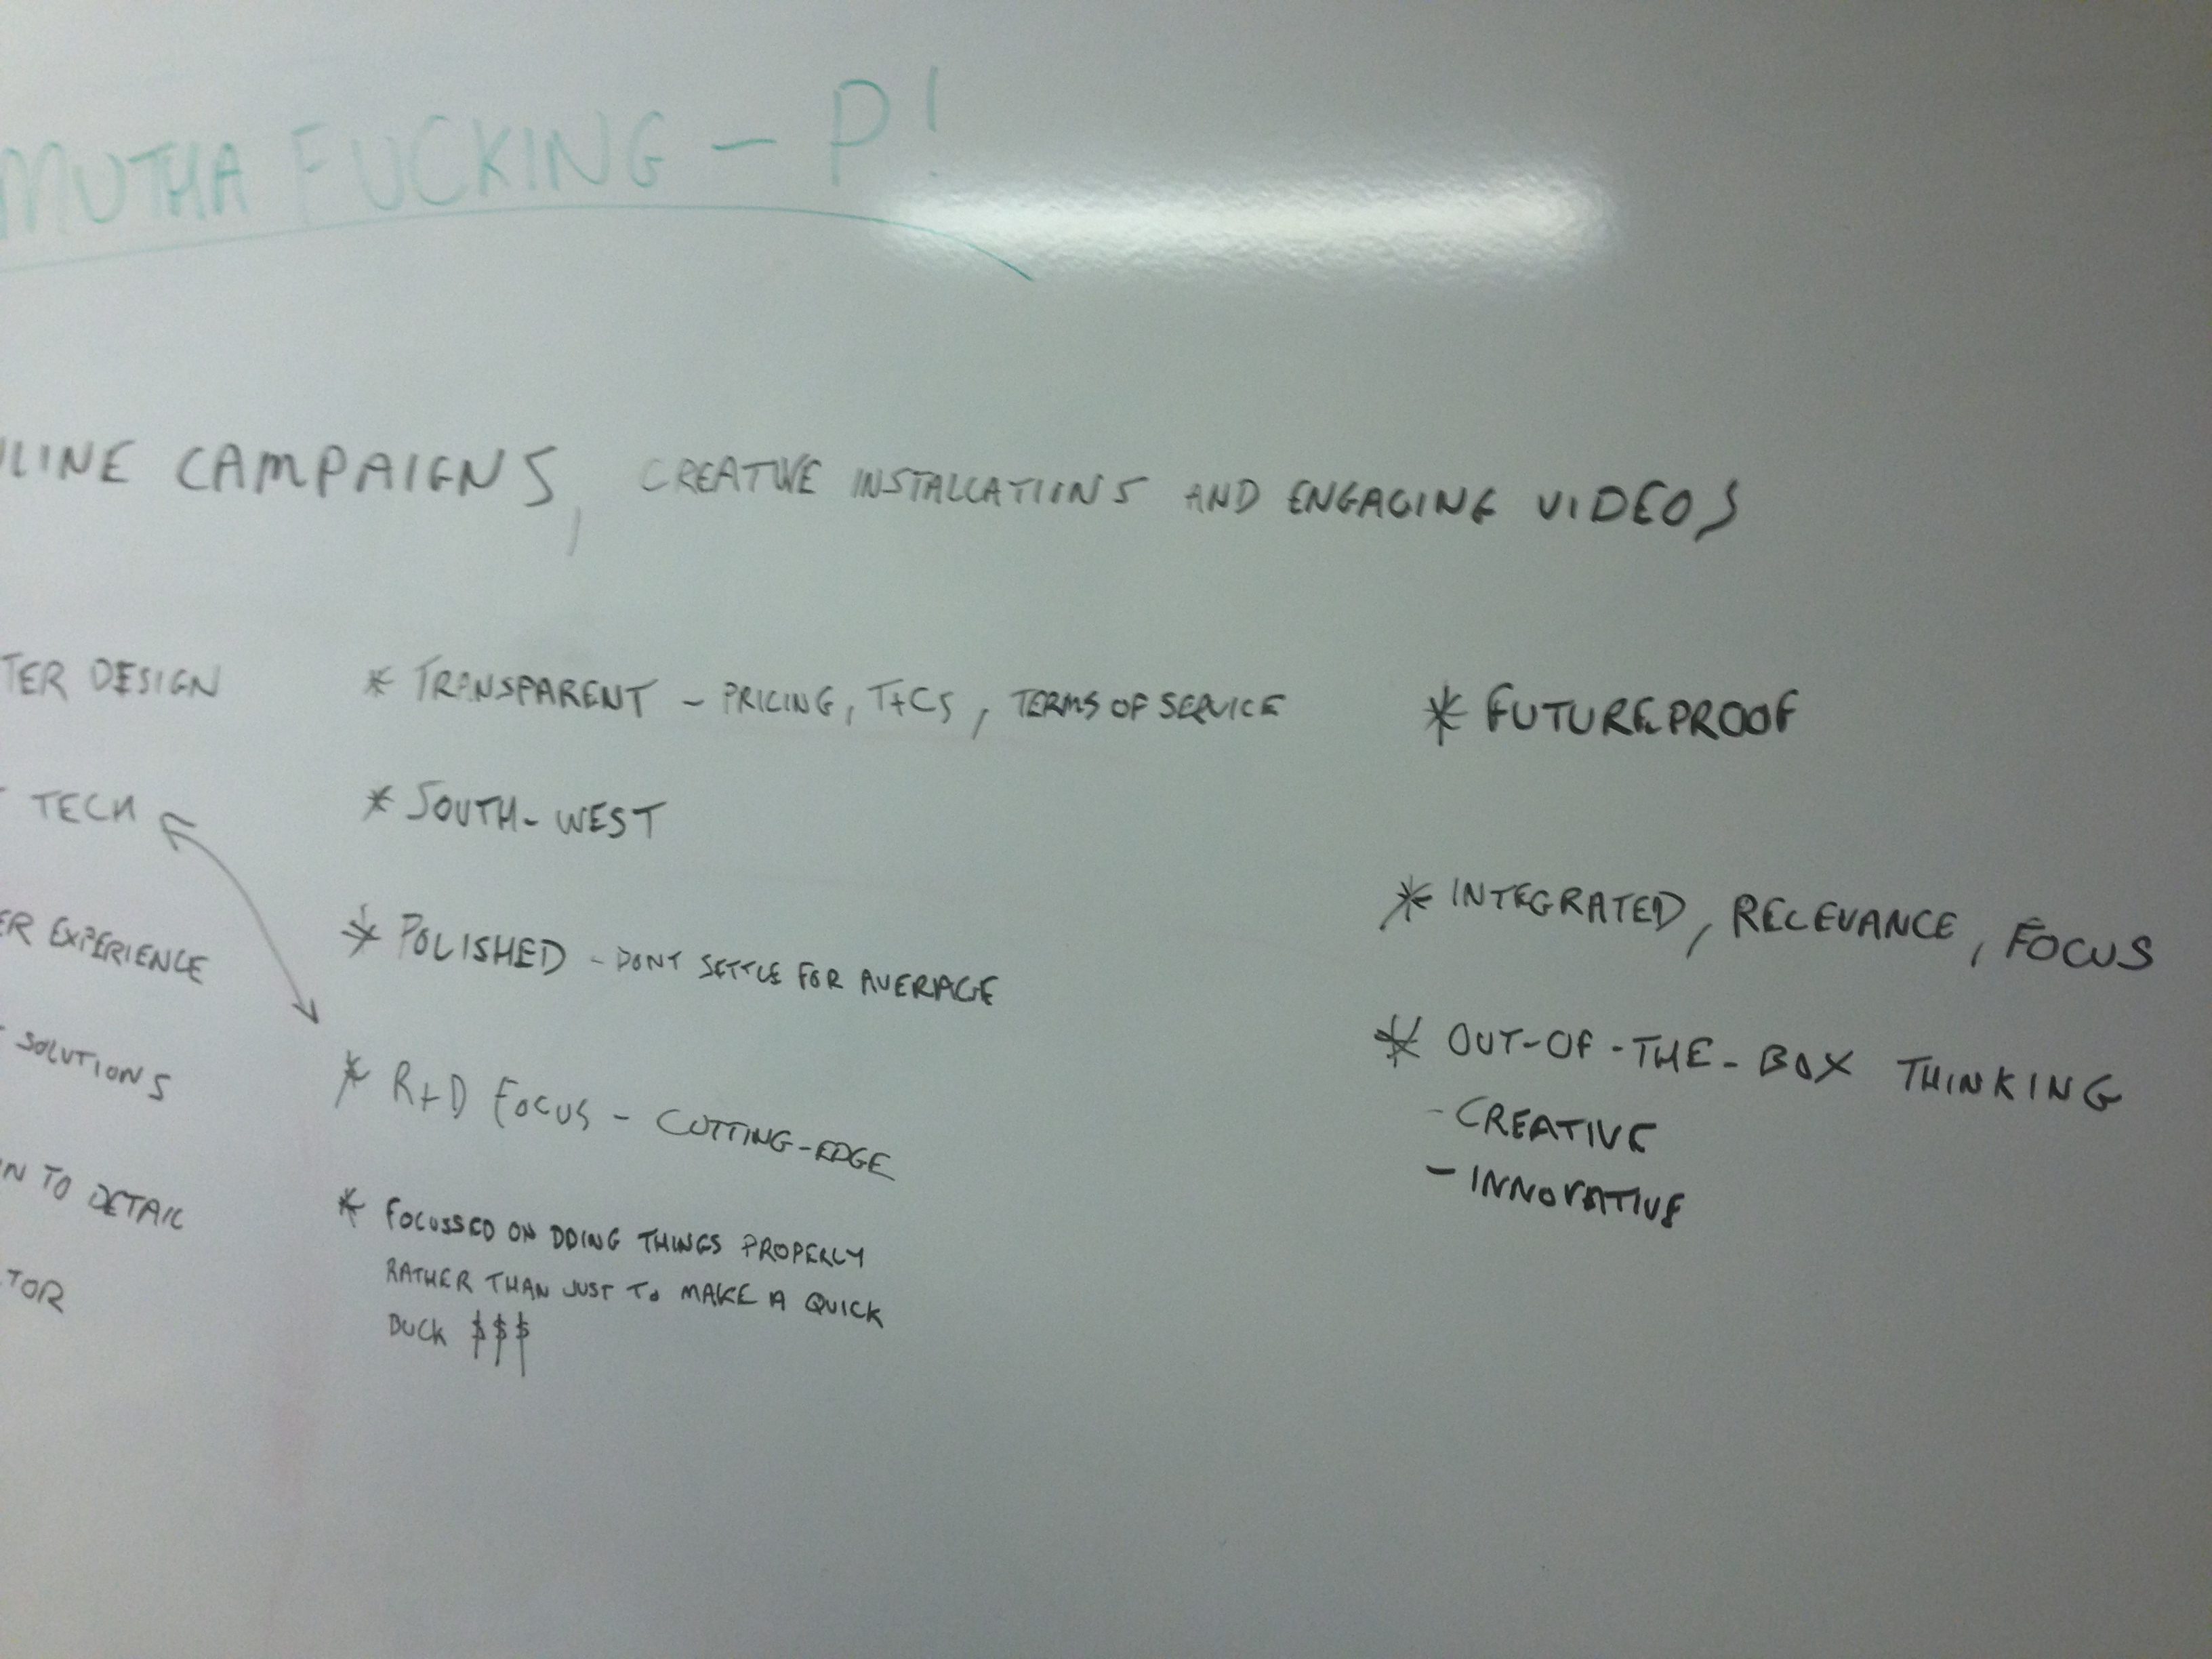 MUTHA FUCKING - P!
LINE CAMPAIGNS, CREATIVE INSTALLATIONS AND ENGAGING VIDEOS
TER DESIGN
TECH
ER EXPERIENCE
SOLUTIONS
N TO DETAIL
TOR
* TRANSPARENT - PRICING, T+CS, TERMS OF SERVICE
* SOUTH-WEST
* POLISHED - DONT SETTLE FOR AVERAGE
* R+D FOCUS - CUTTING-EDGE
* FOCUSSED ON DOING THINGS PROPERLY
RATHER THAN JUST TO MAKE A QUICK
BUCK $$$
* FUTUREPROOF
* INTEGRATED, RELEVANCE, FOCUS
* OUT-OF-THE-BOX THINKING
- CREATIVE
- INNOVATIVE